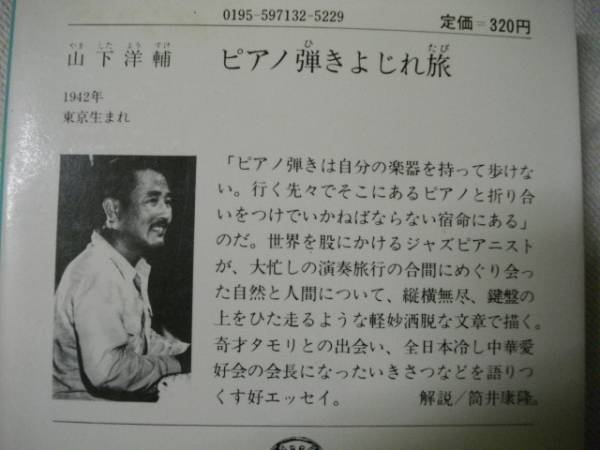 0195-597132-5229
定価=320円
やま した よう すけ
山下洋輔
ピアノ弾きよじれ旅
ひ たび
1942年
東京生まれ
「ピアノ弾きは自分の楽器を持って歩けな
い。行く先々でそこにあるピアノと折り合
いをつけていかねばならない宿命にある」
のだ。世界を股にかけるジャズピアニスト
が、大忙しの演奏旅行の合間にめぐり会っ
た自然と人間について、縦横無尽、鍵盤の
上をひた走るような軽妙洒脱な文章で描く。
奇才タモリとの出会い、全日本冷し中華愛
好会の会長になったいきさつなどを語りつ
くす好エッセイ。 解説/筒井康隆。